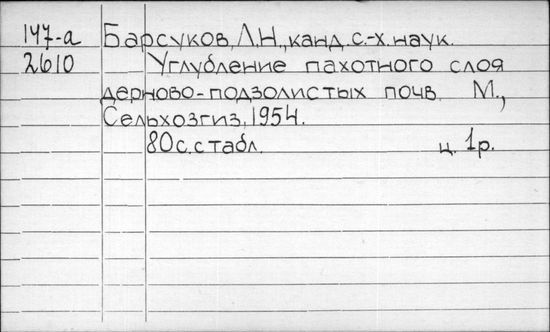 147-а Барсуков, Л.Н., канд. с.-х. наук.
2610 Углубление пахотного слоя
дерново-подзолистых почв. М.,
Сельхозгиз, 1954.
80 с. с табл. ц. 1 р.